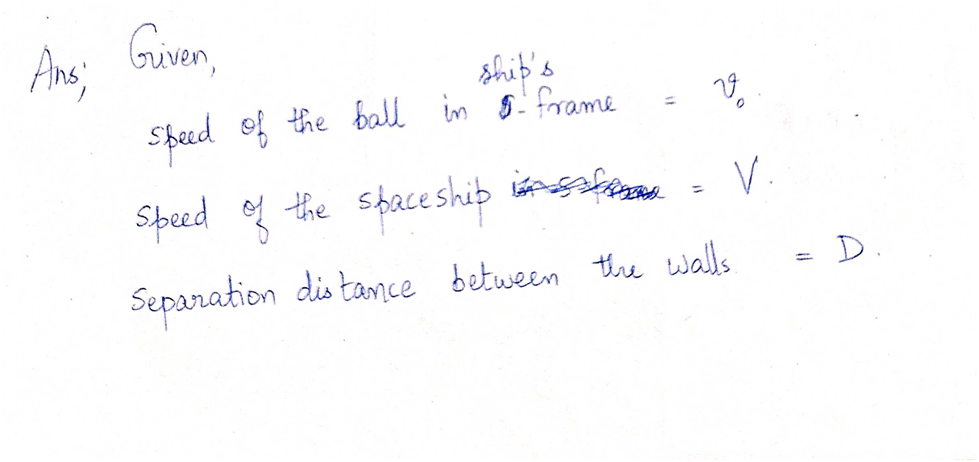 Ans; Given,
speed of the ball in ship's frame = v₀.
speed of the spaceship = V.
Separation distance between the walls = D.